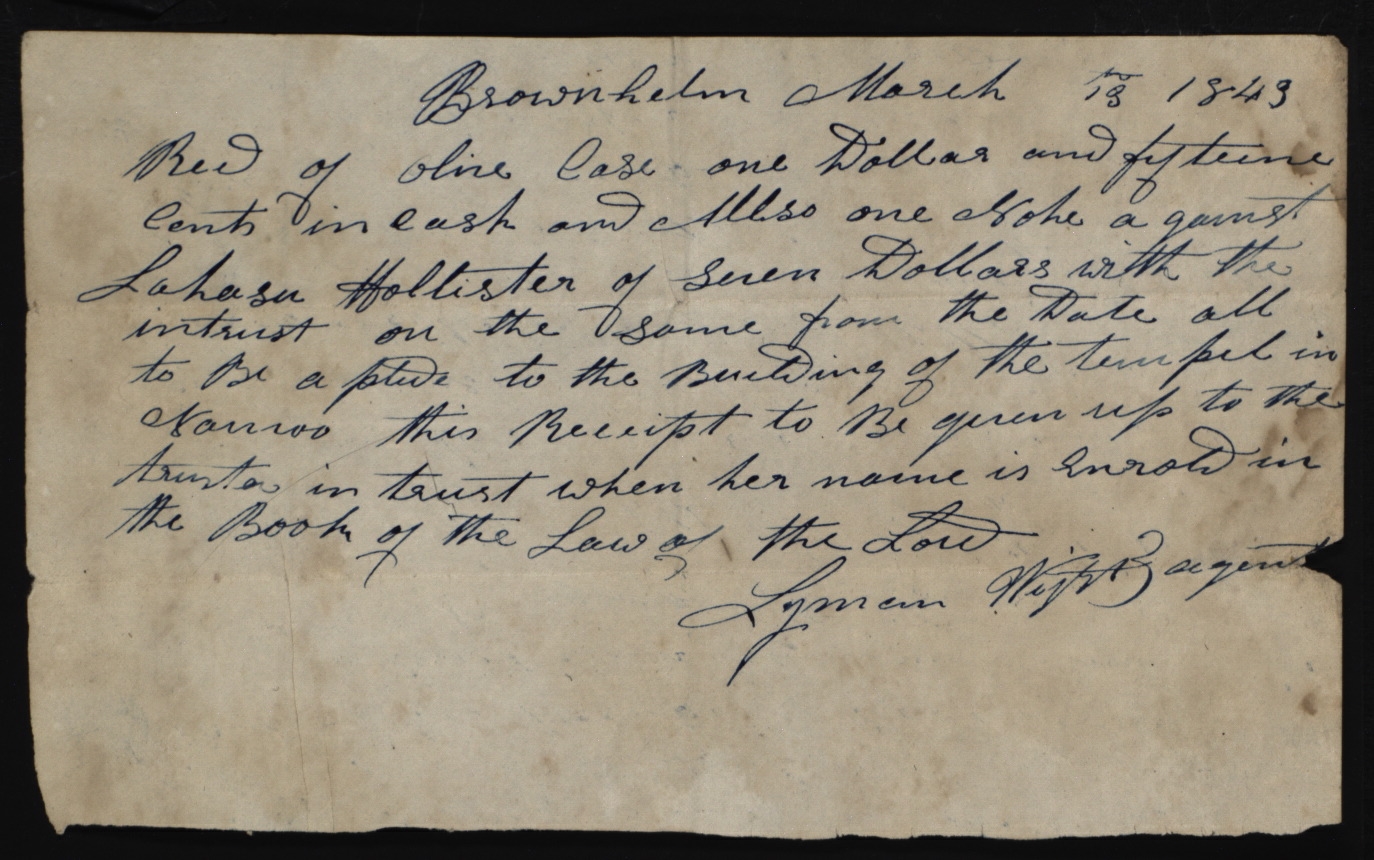 Brownhelm March 13 1843
Recd of olive Case one Dollar and fifteene
Cents in Cash and Allso one Note a gainst
Hollister of Seven Dollars with the
intrust on the Same from the Date all
to Be a plide to the Building of the tempel in
Nauvoo this Receipt to Be given up to the
trusta in trust when her name is Enrold in
the Book of the Law of the Lord
Lyman Wight agent